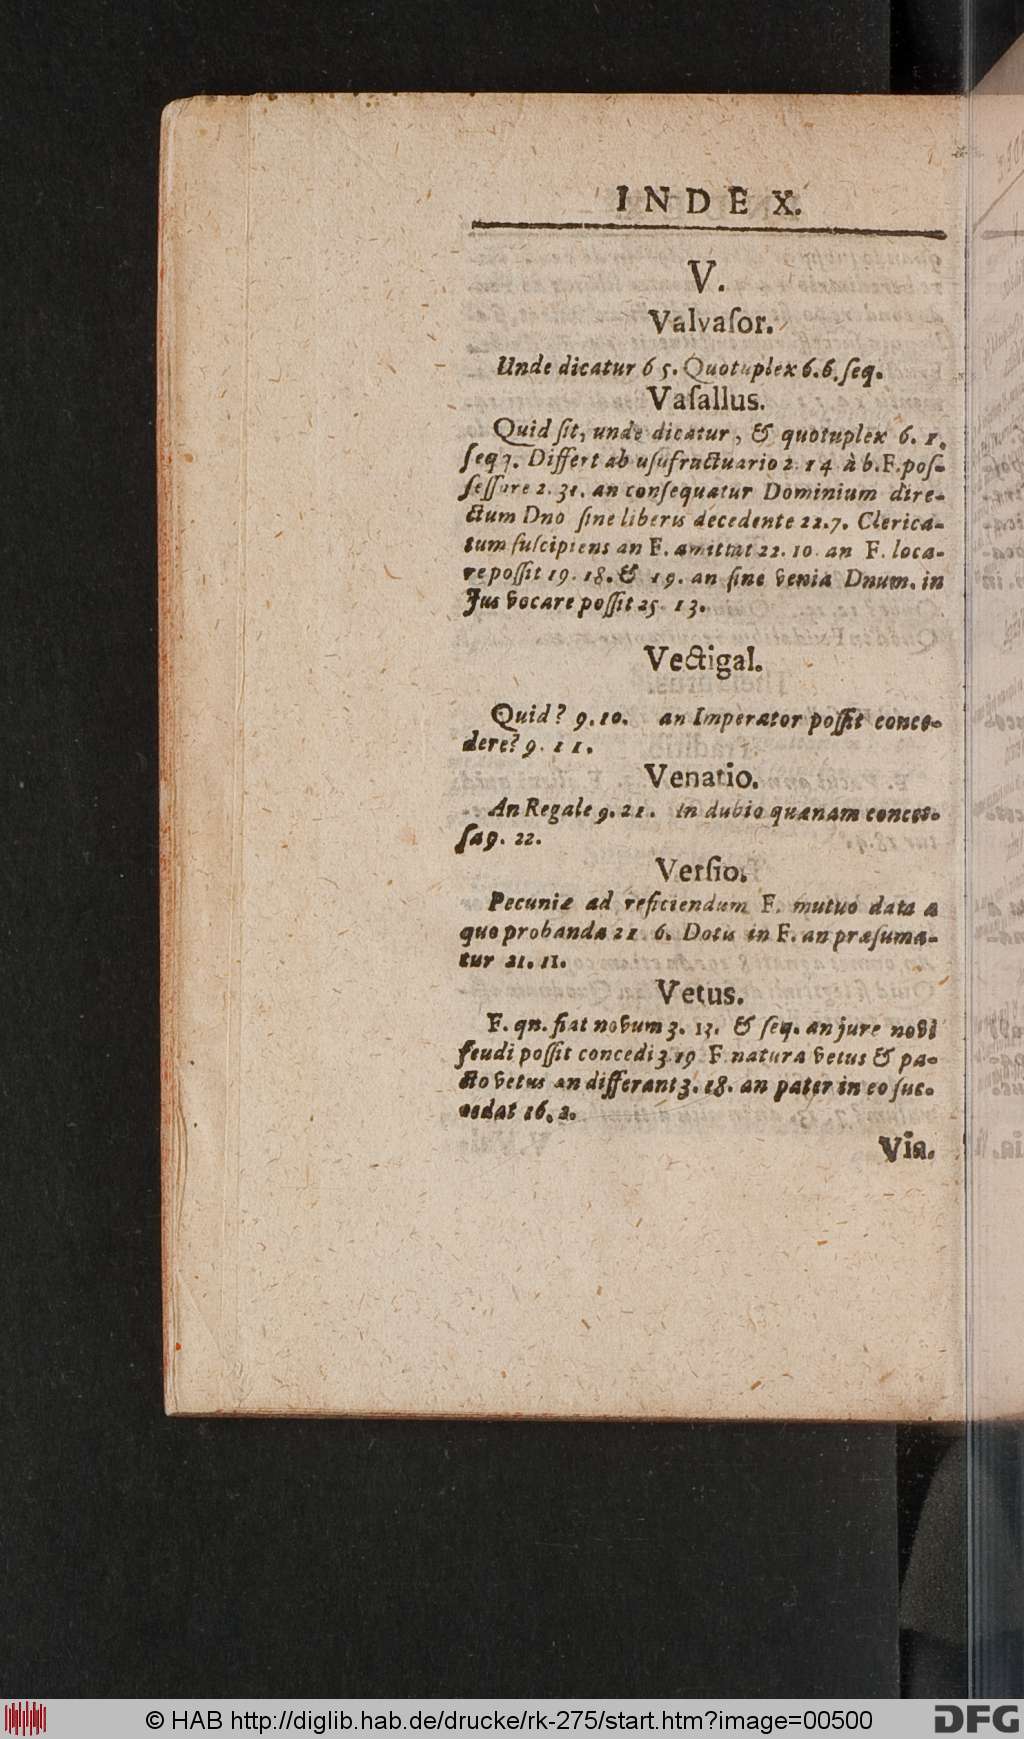 INDEX.
V.
Valvaſor.
Unde dicatur 6 5. Quotuplex 6.6. ſeq.
Vaſallus.
Quid ſit, unde dicatur, & quotuplex 6. 1.
ſeqq. Differt ab uſufructuario 2. 14 à b. F. poſ-
ſeſſore 2. 31. an conſequatur Dominium dire-
ctum Dno ſine liberis decedente 22.7. Clerica-
tum ſuſcipiens an F. amittat 22. 10. an F. loca-
re poſſit 19. 18. & 19. an ſine venia Dnum. in
Jus vocare poſſit 25. 13.
Vectigal.
Quid? 9.10. an Imperator poſſit conce-
dere? 9. 11.
Venatio.
An Regale 9. 21. in dubio quænam conceſ-
ſa 9. 22.
Verſio.
Pecuniæ ad reficiendum F. mutuo data a
quo probanda 21. 6. Dotis in F. an præſuma-
tur 21. 11.
Vetus.
F. qn. fiat novum 3. 13. & ſeq. an jure novi
feudi poſſit concedi 3 19 F natura vetus & pa-
cto vetus an differant 3. 18. an pater in eo ſuc-
cedat 16. 2.
Via.
© HAB http://diglib.hab.de/drucke/rk-275/start.htm?image=00500
DFG